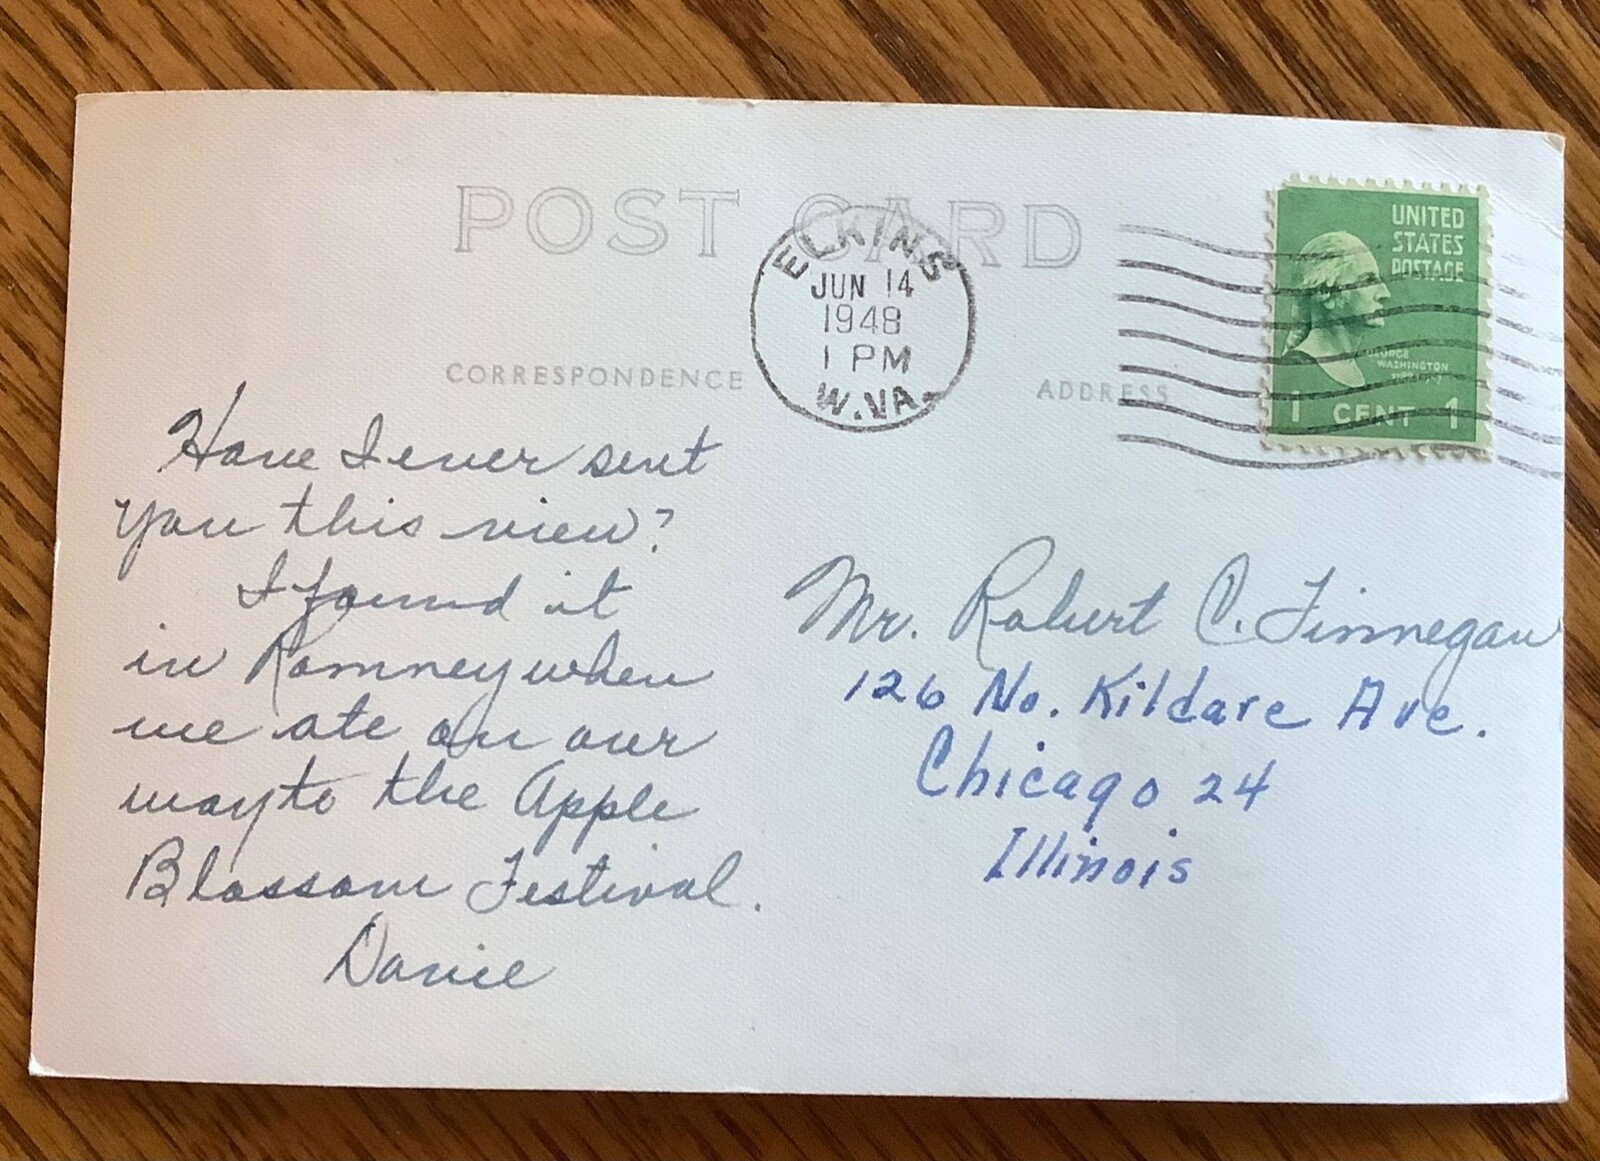 POST CARD
ELKINS
JUN 14
1948
1 PM
W.VA.
UNITED
STATES
POSTAGE
GEORGE
WASHINGTON
1 CENT 1
CORRESPONDENCE
ADDRESS
Have I ever sent
you this view?
I found it
in Romney when
we ate on our
way to the Apple
Blossom Festival.
Mr. Robert C. Finnegan
126 No. Kildare Ave.
Chicago 24
Illinois